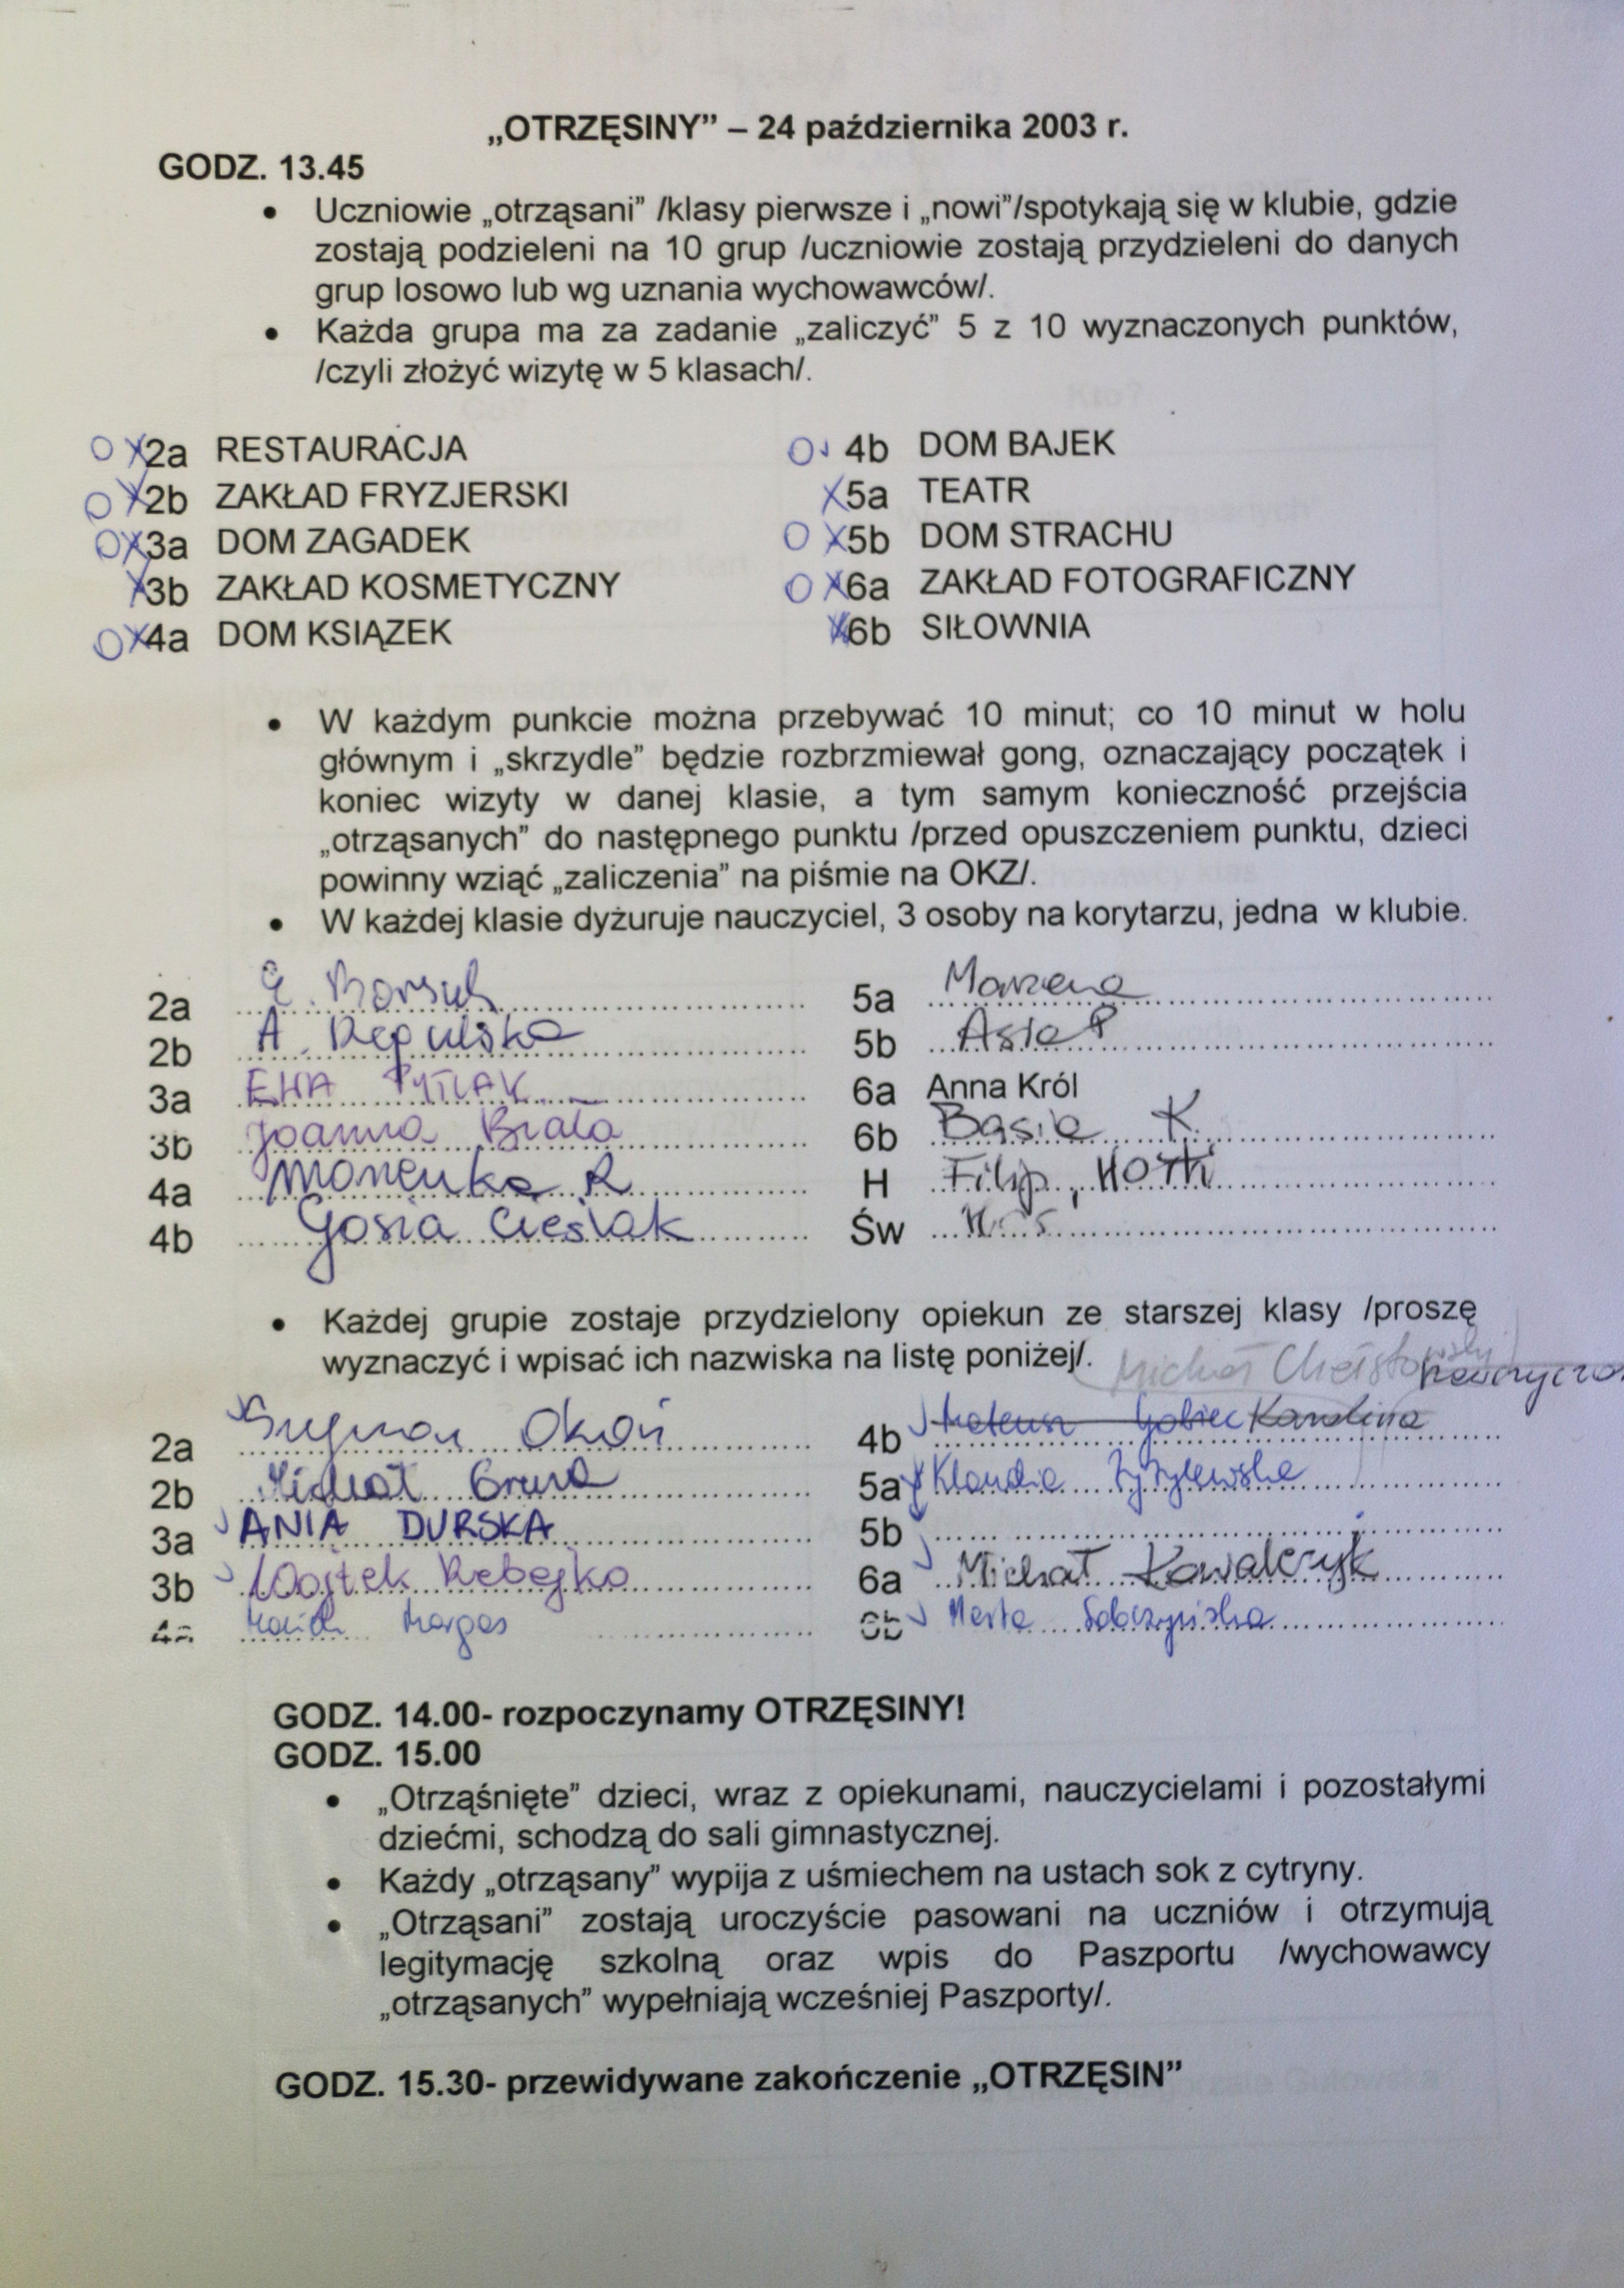 „OTRZĘSINY” – 24 października 2003 r.
GODZ. 13.45
• Uczniowie „otrząsani” /klasy pierwsze i „nowi”/spotykają się w klubie, gdzie
zostają podzieleni na 10 grup /uczniowie zostają przydzieleni do danych
grup losowo lub wg uznania wychowawców/.
• Każda grupa ma za zadanie „zaliczyć” 5 z 10 wyznaczonych punktów,
/czyli złożyć wizytę w 5 klasach/.
O X 2a RESTAURACJA
O X 2b ZAKŁAD FRYZJERSKI
O X 3a DOM ZAGADEK
X 3b ZAKŁAD KOSMETYCZNY
O X 4a DOM KSIĄZEK
O 4b DOM BAJEK
X 5a TEATR
O X 5b DOM STRACHU
O X 6a ZAKŁAD FOTOGRAFICZNY
X 6b SIŁOWNIA
• W każdym punkcie można przebywać 10 minut; co 10 minut w holu
głównym i „skrzydle” będzie rozbrzmiewał gong, oznaczający początek i
koniec wizyty w danej klasie, a tym samym konieczność przejścia
„otrząsanych” do następnego punktu /przed opuszczeniem punktu, dzieci
powinny wziąć „zaliczenia” na piśmie na OKZ/.
• W każdej klasie dyżuruje nauczyciel, 3 osoby na korytarzu, jedna w klubie.
2a Borsuk
2b A. Regulska
3a EWA PYTLAK
3b Joanna Biała
4a Monika R
4b Gosia Cieślak
5a Marzena
5b Asia P
6a Anna Król
6b Basia K.
H Filip,
Św
• Każdej grupie zostaje przydzielony opiekun ze starszej klasy /proszę
wyznaczyć i wpisać ich nazwiska na listę poniżej/.
Michał
2a Szymon Okoń
2b Michał
3a ANIA DURSKA
3b Wojtek Rebejko
4a Margas
4b Mateusz Karolina
5a Klaudia
5b
6a Michał Kowalczyk
6b Marta Sobczyńska
GODZ. 14.00- rozpoczynamy OTRZĘSINY!
GODZ. 15.00
• „Otrząśnięte” dzieci, wraz z opiekunami, nauczycielami i pozostałymi
dziećmi, schodzą do sali gimnastycznej.
• Każdy „otrząsany” wypija z uśmiechem na ustach sok z cytryny.
• „Otrząsani” zostają uroczyście pasowani na uczniów i otrzymują
legitymację szkolną oraz wpis do Paszportu /wychowawcy
„otrząsanych” wypełniają wcześniej Paszporty/.
GODZ. 15.30- przewidywane zakończenie „OTRZĘSIN”